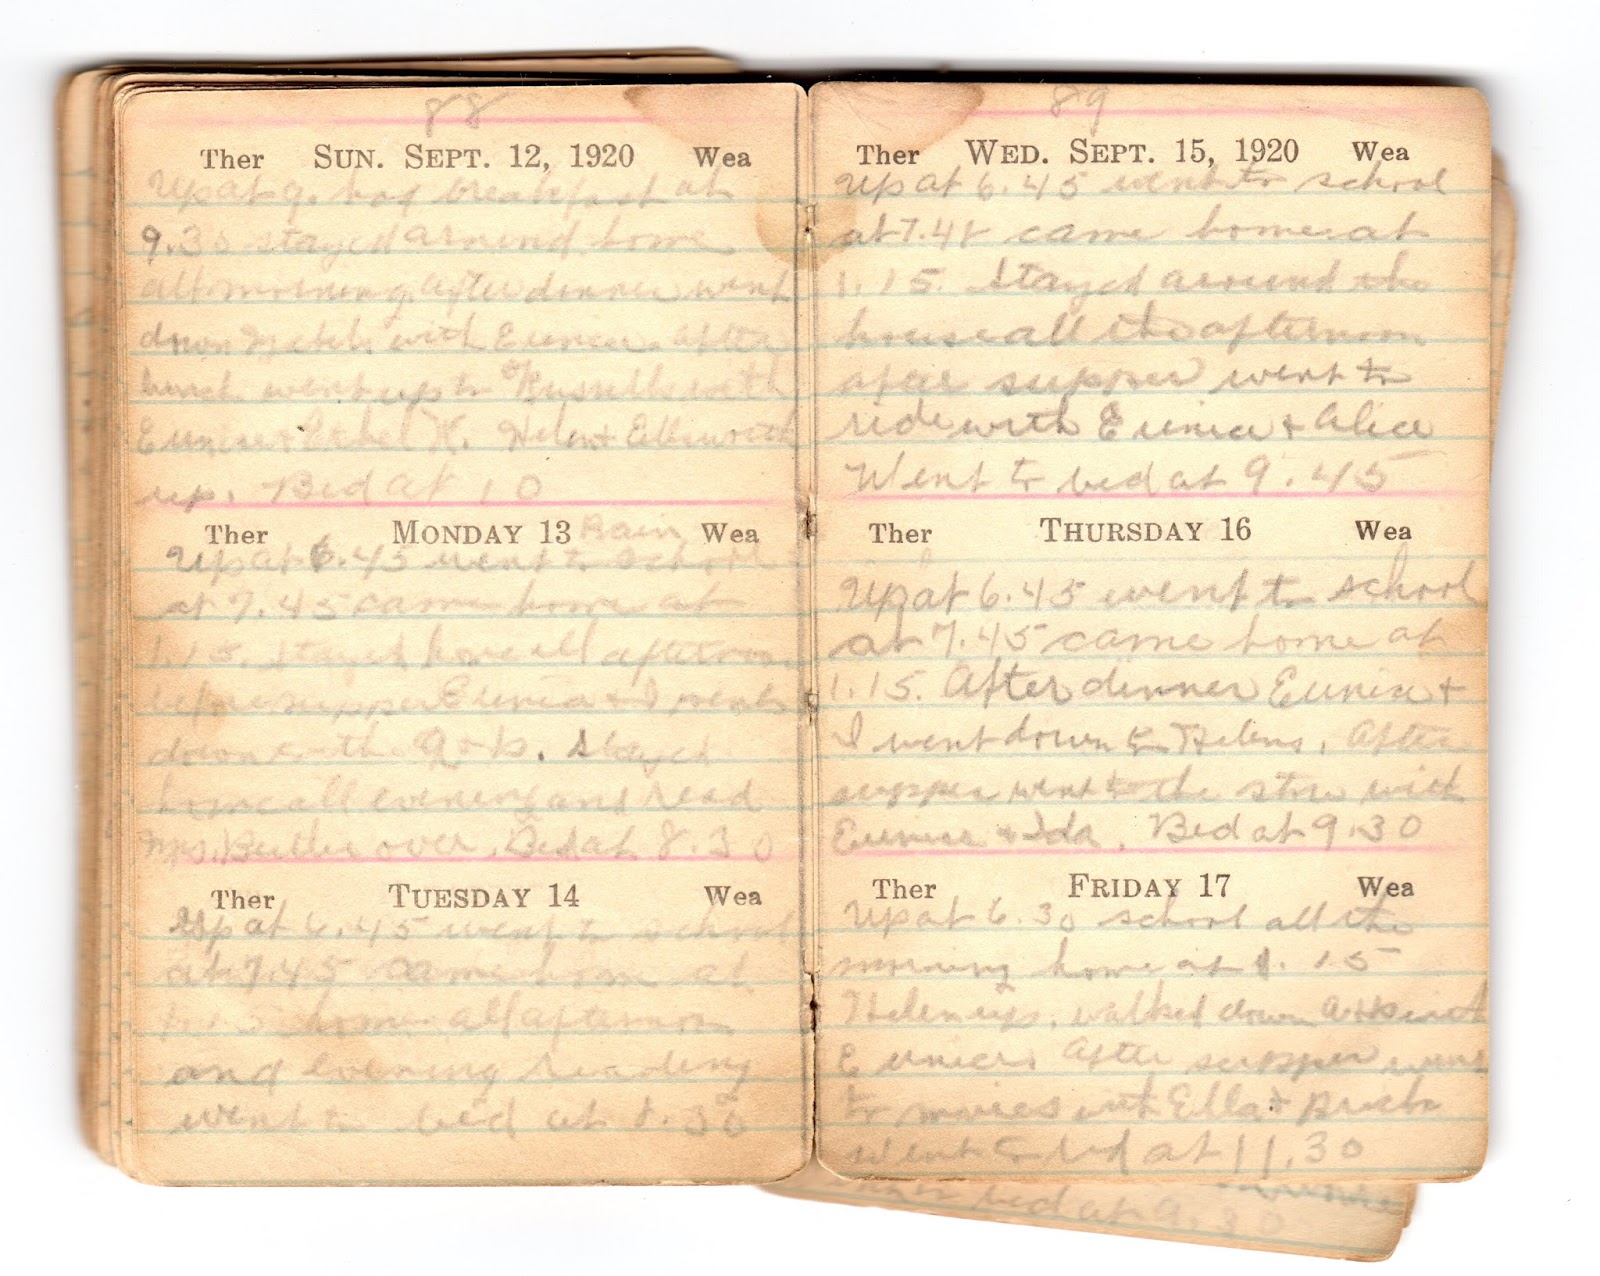 88
Ther SUN. SEPT. 12, 1920 Wea
Up at 9. had breakfast at
9.30 stayed around home
all morning. After dinner went
down with Eunice. After
lunch went up to Russells with
Eunice & Ethel K. Helen & Ellsworth
up. Bed at 10
Ther MONDAY 13 Rain Wea
Up at 6.45 went to school
at 7.45 came home at
1.15. Stayed home all afternoon
before supper Eunice & I went
down to the Stayed
home all evening and read
Mrs. Butler over. Bed at 8.30
Ther TUESDAY 14 Wea
Up at 6.45 went to school
at 7.45 came home at
1.15 home all afternoon
and evening reading
went to bed at 8.30
89
Ther WED. SEPT. 15, 1920 Wea
Up at 6.45 went to school
at came home at
1.15. Stayed around the
house all the afternoon
after supper went to
ride with Eunice & Alice
Went to bed at 9.45
Ther THURSDAY 16 Wea
Up at 6.45 went to school
at 7.45 came home at
1.15. After dinner Eunice &
I went down to Helens. After
supper went to the store with
Eunice & Ida. Bed at 9.30
Ther FRIDAY 17 Wea
Up at 6.30 school all the
morning home at 1.15
Helen up. walked down
Eunice. After supper went
to movies with Ella &
went to bed at 11.30
bed at 9.30